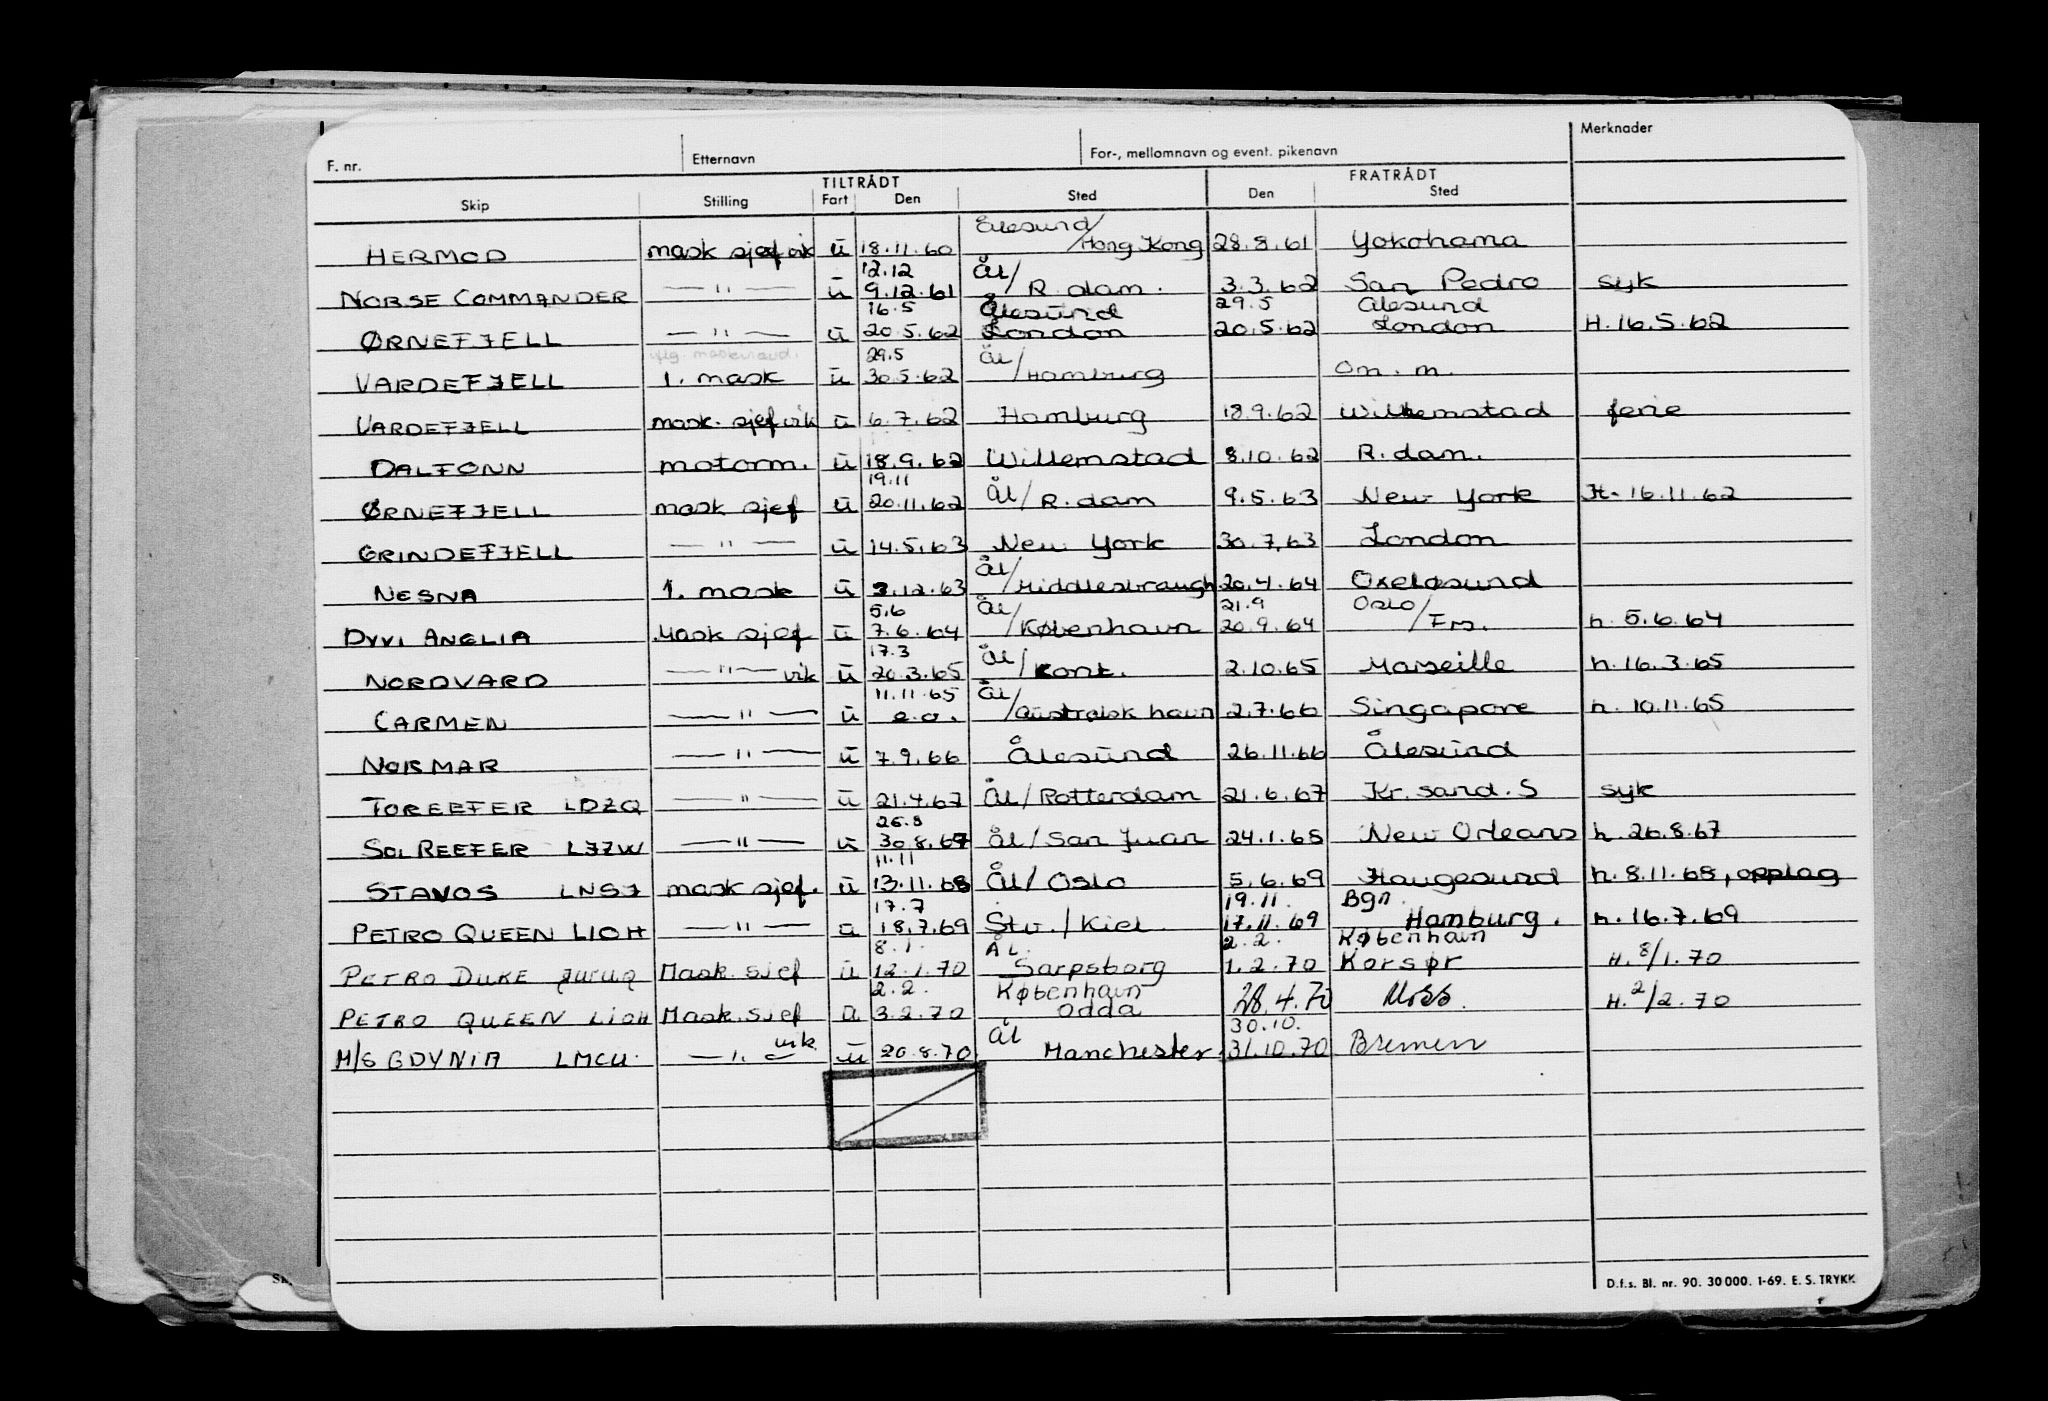 F. nr. Etternavn For-, mellomnavn og event. pikenavn Merknader
TILTRÅDT FRATRÅDT
Skip Stilling Fart Den Sted Den Sted
Ålesund/
HERMOD mask sjef vik u 18.11.60 Hong Kong 28.8.61 Yokohama
12.12 Ål/
NORSE COMMANDER — " — u 9.12.61 R.dam. 3.3.62 San Pedro syk
16.5 Ålesund 29.5 Ålesund
ØRNEFJELL — " — u 20.5.62 London 20.5.62 London H. 16.5.62
29.5 Ål/
VARDEFJELL 1. mask u 30.5.62 Hamburg om. m.
VARDEFJELL mask. sjef vik u 6.7.62 Hamburg 18.9.62 Willemstad ferie
DALFONN motorm. u 18.9.62 Willemstad 8.10.62 R.dam.
19.11
ØRNEFJELL mask sjef u 20.11.62 Ål/R.dam 9.5.63 New York H. 16.11.62
GRINDEFJELL — " — u 14.5.63 New York 30.7.63 London
Ål/
NESNA 1. mask u 3.12.63 Middlesbraugh 20.4.64 Oxeløsund
5.6 Ål/ 21.9 Oslo/
DYVI ANGLIA Mask sjef u 7.6.64 København 20.9.64 Frs. h. 5.6.64
17.3 Ål/
NORDVARD — " — vik u 20.3.65 Kont. 2.10.65 Marseille h. 16.3.65
11.11.65 Ål/
CARMEN — " — u e.o. Australsk havn 2.7.66 Singapore h. 10.11.65
NORMAR — " — u 7.9.66 Ålesund 26.11.66 Ålesund
TOREEFER LDZQ — " — u 21.4.67 Ål/Rotterdam 21.6.67 Kr.sand.S syk
26.8
SOL REEFER LJZW — " — u 30.8.67 Ål/San Juan 24.1.68 New Orleans h. 26.8.67
11.11
STAVOS LNSJ mask sjef. u 13.11.68 Ål/Oslo 5.6.69 Haugesund h. 8.11.68, opplag
17.7 19.11. Bgn.
PETRO QUEEN LIOH — " — u 18.7.69 Stv./Kiel 17.11.69 Hamburg. h. 16.7.69
8.1. ÅL. 2.2. København
PETRO DUKE Mask. sjef u 12.1.70 Sarpsborg 1.2.70 Korsør H. 8/1.70
2.2. København
PETRO QUEEN LIOH Mask. sjef u 3.2.70 Odda 28.4.70 Moss. H. 2/2.70
vik. Ål 30.10.
M/S GDYNIA LMCU. — " — u 20.8.70 Manchester 31.10.70 Bremen
D.f.s. Bl. nr. 90. 30 000. 1-69. E. S. TRYKK